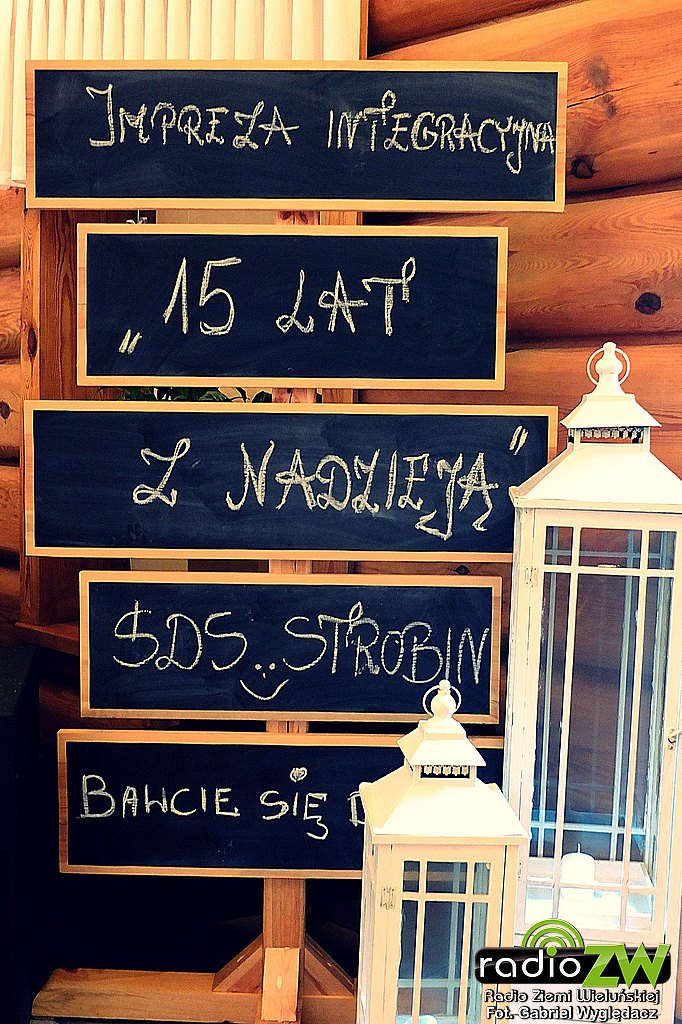 IMPREZA INTEGRACYJNA
„15 LAT
Z NADZIEJĄ”
SDS STROBIN
BAWCIE SIĘ
radioZW
Radio Ziemi Wieluńskiej
Fot. Gabriel Wyględacz